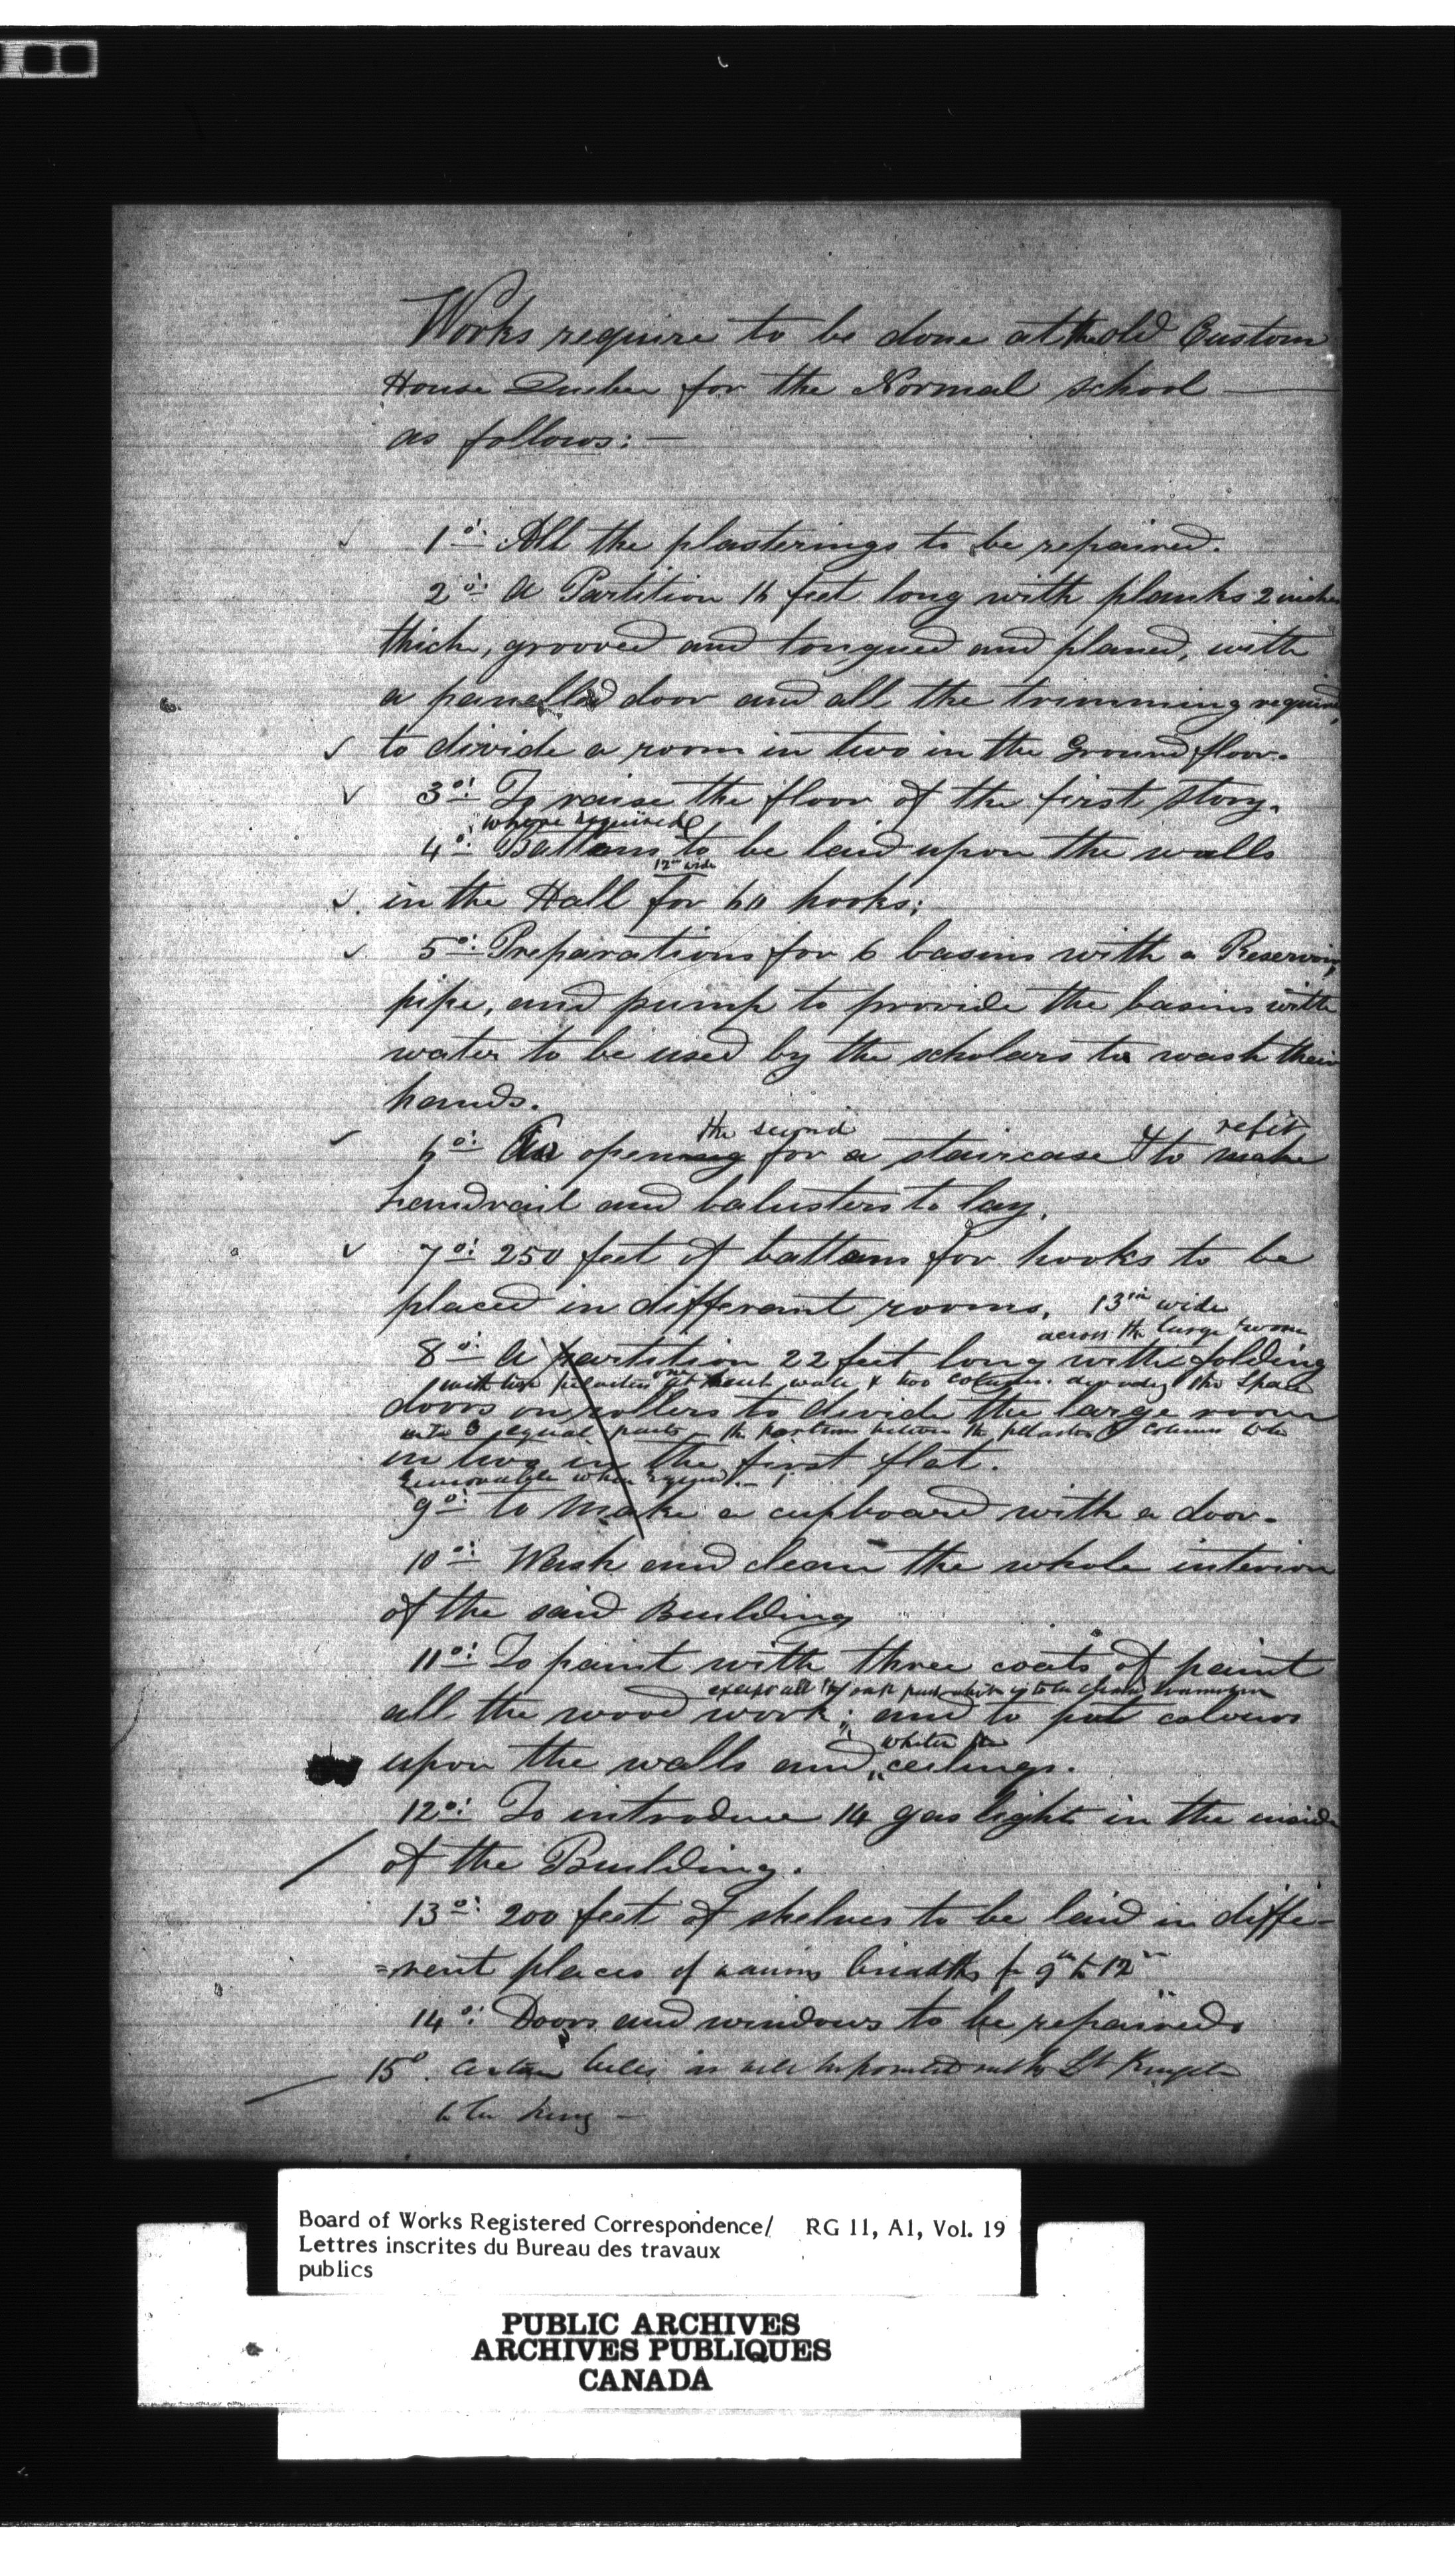 Works require to be done at the old Custom
House Quebec for the Normal school —
as follows: —
1o: All the plasterings to be repaired.
2o: A Partition 16 feet long with planks 2 inches
thick, grooved and tongued and planed, with
a panelled door and all the trimming required,
to divide a room in two in the Ground floor.
3o: To raise the floor of the first story.
where required
4o: Battans to be laid upon the walls
12in wide
in the Hall for 60 hooks;
5o: Preparations for 6 basins with a Reservoir,
pipe, and pump to provide the basins with
water to be used by the scholars to wash their
hands.
the second refit
6o: To open for a staircase & to make
handrail and balusters to lay.
7o: 250 feet of battans for hooks to be
placed in different rooms. 13in wide
across the large room
8o: A partition 22 feet long with folding
with two pilasters one at each wall & two columns dividing the space
doors on rollers to divide the large room
into 3 equal parts the partition between the pilasters & columns to be
in two in the first flat.
removable when required. —
9o: to make a cupboard with a door.
10o: Wash and clean the whole interior
of the said Building
11o: To paint with three coats of paint
except all the oak which is to be
all the wood work; and to put colours
whiten the
upon the walls and ceilings.
12o: To introduce 14 gas light in the inside
of the Building.
13o: 200 feet of shelves to be laid in diffe-
=rent places of various breadths fr 9in to 12in
14o: Doors and windows to be repaired.
15o. Certain bells as will be pointed out
to be hung —
Board of Works Registered Correspondence/ RG 11, A1, Vol. 19
Lettres inscrites du Bureau des travaux
publics
PUBLIC ARCHIVES
ARCHIVES PUBLIQUES
CANADA